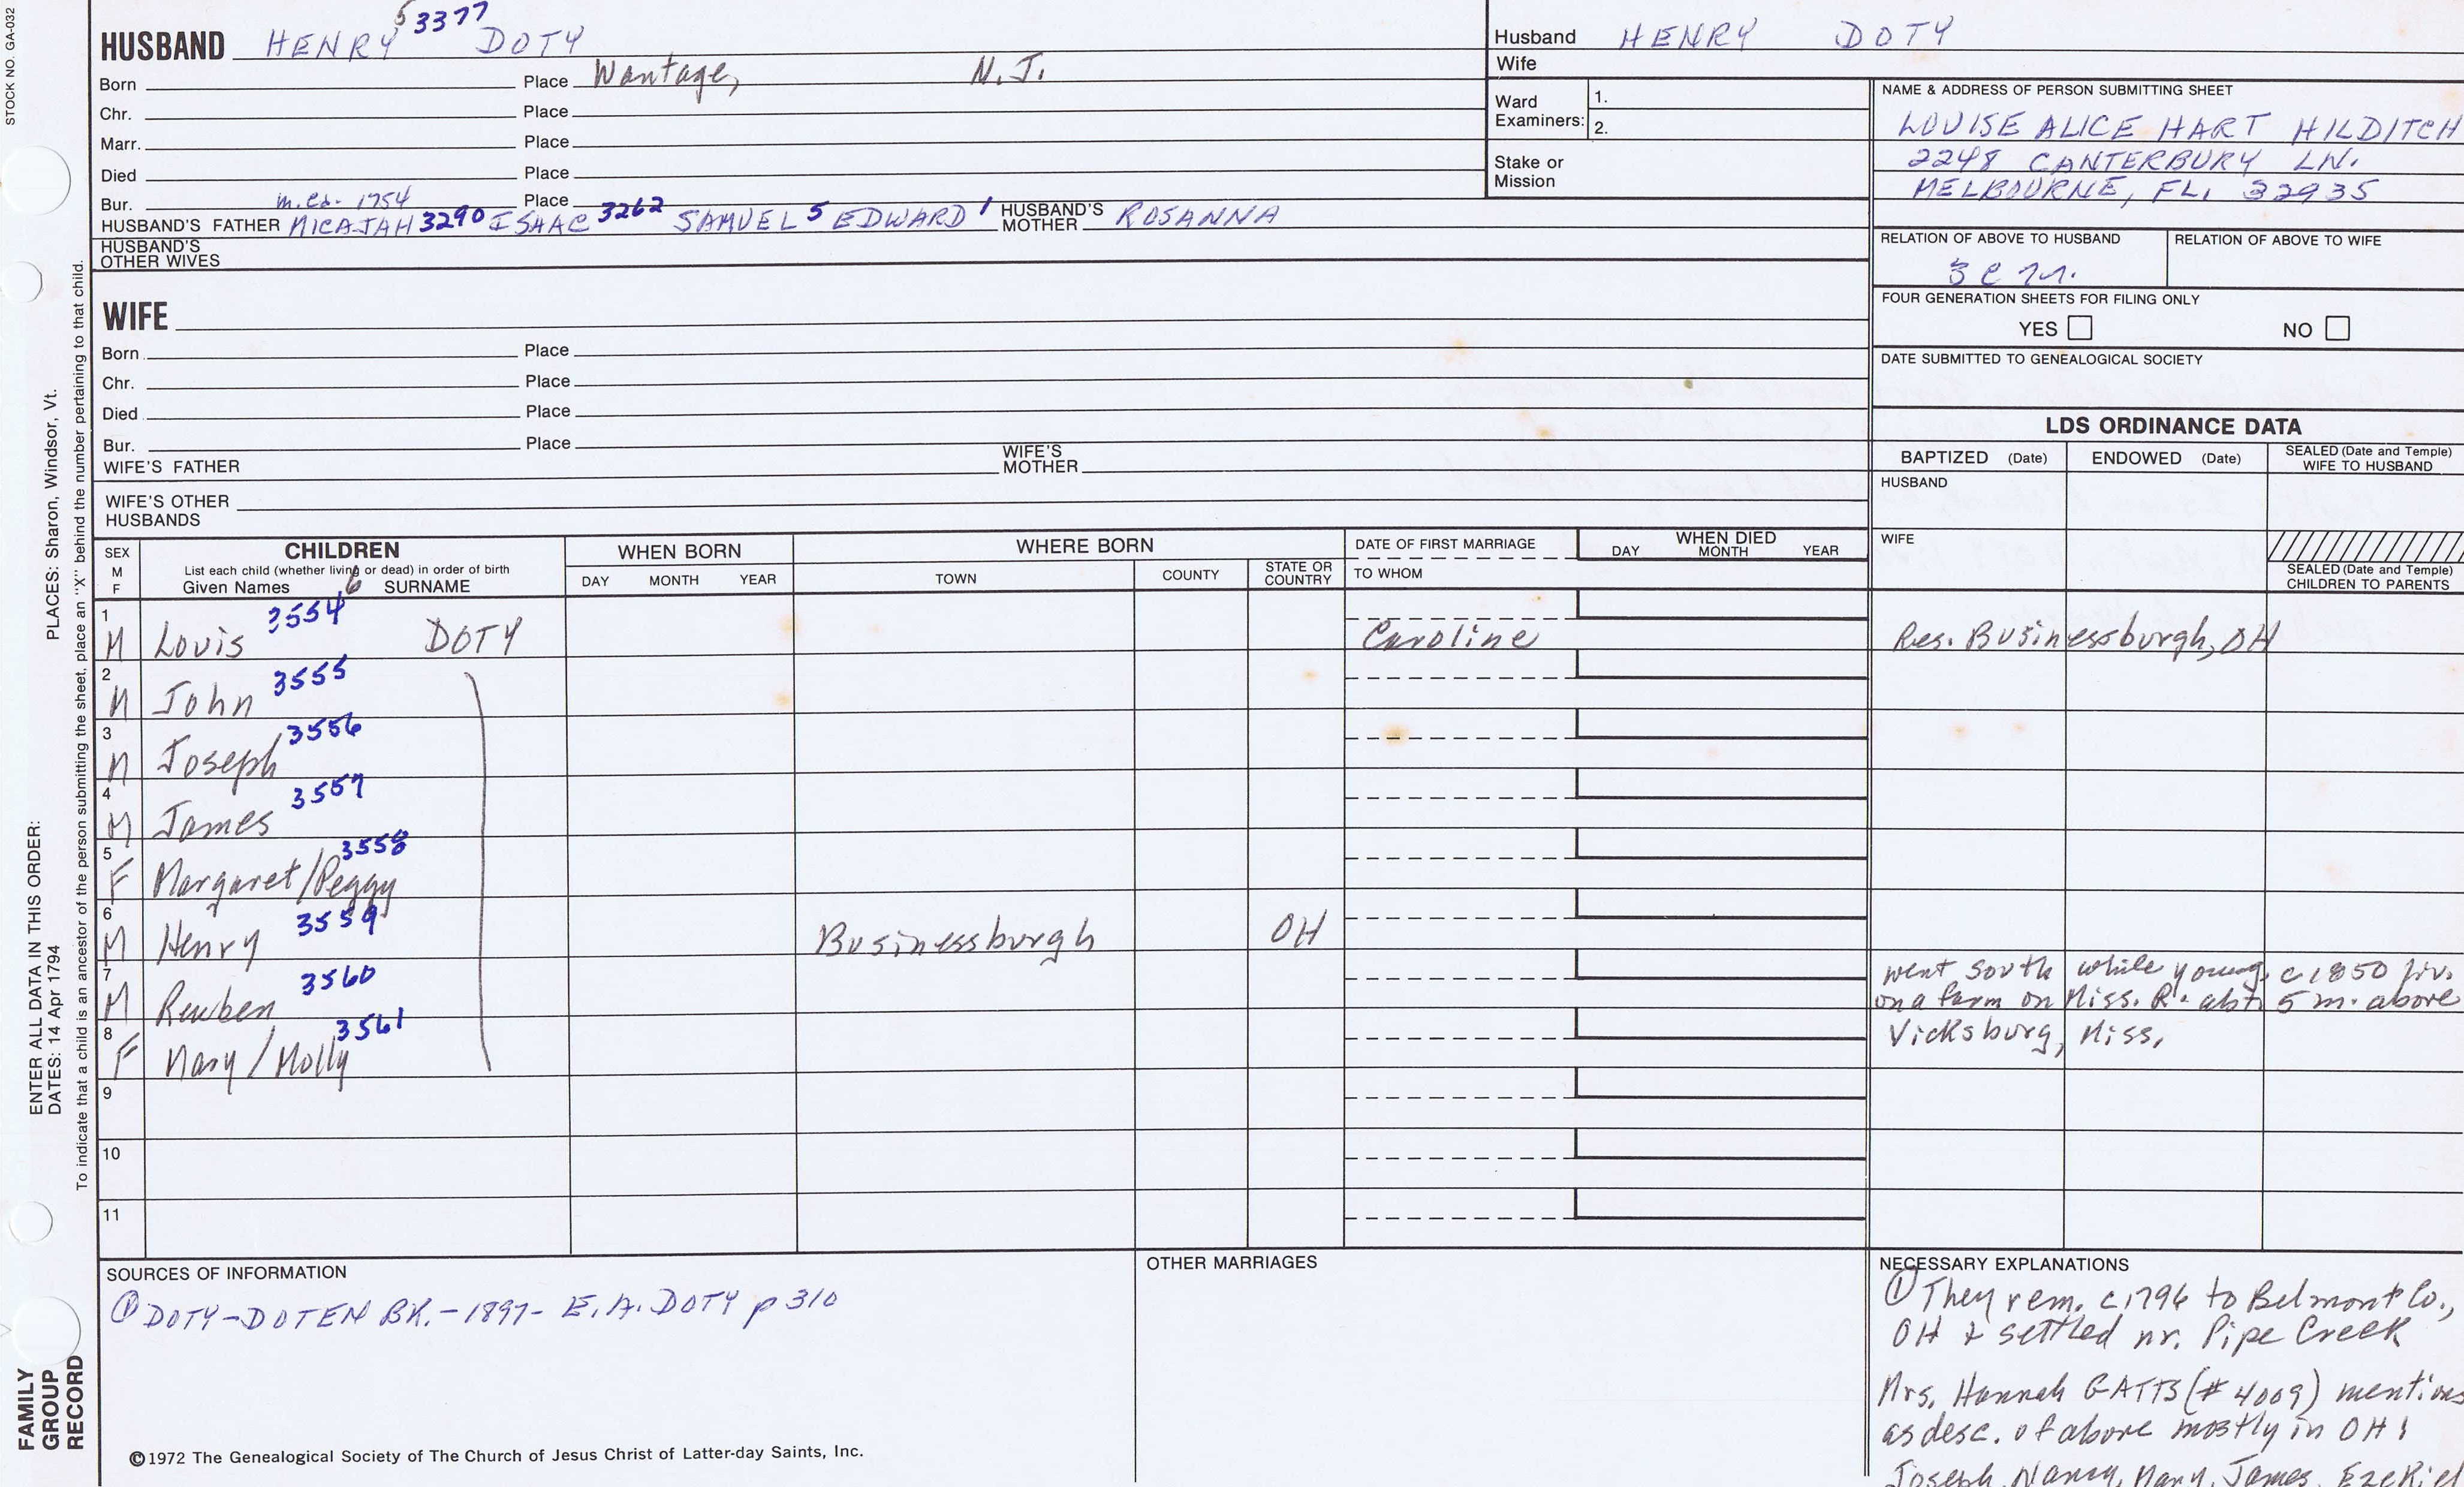 STOCK NO. GA-032
5 3377
HUSBAND HENRY DOTY
Born Place Wantage, N.J.
Chr. Place
Marr. Place
Died Place
Bur. Place
HUSBAND'S FATHER MICAJAH 3290 ISAAC 3262 SAMUEL 5 EDWARD 1 HUSBAND'S MOTHER ROSANNA
HUSBAND'S OTHER WIVES
Husband HENRY DOTY
Wife
Ward Examiners: 1.
2.
Stake or Mission
NAME & ADDRESS OF PERSON SUBMITTING SHEET
LOUISE ALICE HART HILDITCH
2248 CANTERBURY LN.
MELBOURNE, FL. 32935
RELATION OF ABOVE TO HUSBAND RELATION OF ABOVE TO WIFE
FOUR GENERATION SHEETS FOR FILING ONLY
YES NO
DATE SUBMITTED TO GENEALOGICAL SOCIETY
WIFE
Born Place
Chr. Place
Died Place
Bur. Place
WIFE'S FATHER WIFE'S MOTHER
WIFE'S OTHER HUSBANDS
LDS ORDINANCE DATA
BAPTIZED (Date) ENDOWED (Date) SEALED (Date and Temple) WIFE TO HUSBAND
HUSBAND
WIFE
SEALED (Date and Temple) CHILDREN TO PARENTS
SEX M F
CHILDREN
List each child (whether living or dead) in order of birth
Given Names 6 SURNAME
WHEN BORN
DAY MONTH YEAR
WHERE BORN
TOWN COUNTY STATE OR COUNTRY
DATE OF FIRST MARRIAGE
TO WHOM
WHEN DIED
DAY MONTH YEAR
1 M Louis 3554 DOTY Caroline Res. Businessburgh, OH
2 M John 3555
3 M Joseph 3556
4 M James 3557
5 F Margaret/Peggy 3558
6 M Henry 3559 Businessburgh OH
7 M Reuben 3560 went south while young. c 1850 liv.
on a farm on Miss. R. abt. 5 m. above
8 F Mary/Molly 3561 Vicksburg, Miss.
9
10
11
SOURCES OF INFORMATION
① DOTY-DOTEN BK.-1897- E.A. DOTY p 310
©1972 The Genealogical Society of The Church of Jesus Christ of Latter-day Saints, Inc.
OTHER MARRIAGES
NECESSARY EXPLANATIONS
① They rem. c1796 to Belmont Co.,
OH & settled nr. Pipe Creek
Mrs. Hannah GATTS (# 4009) mentions
as desc. of above mostly in OH:
Joseph, Nancy, Mary, James, Ezekiel
ENTER ALL DATA IN THIS ORDER:
DATES: 14 Apr 1794 PLACES: Sharon, Windsor, Vt.
To indicate that a child is an ancestor of the person submitting the sheet, place an "X" behind the number pertaining to that child.
FAMILY
GROUP
RECORD